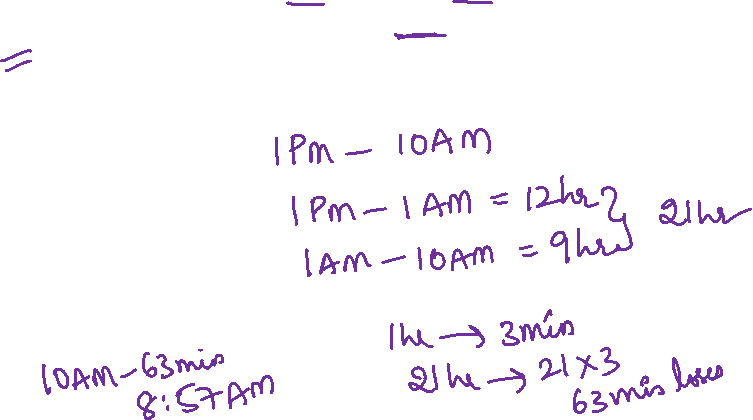 =
1 PM – 10 AM
1 PM – 1 AM = 12 hr } 21 hr
1 AM – 10 AM = 9 hr
1 hr → 3 min
21 hr → 21 × 3
63 min loses
10 AM – 63 min
8:57 AM